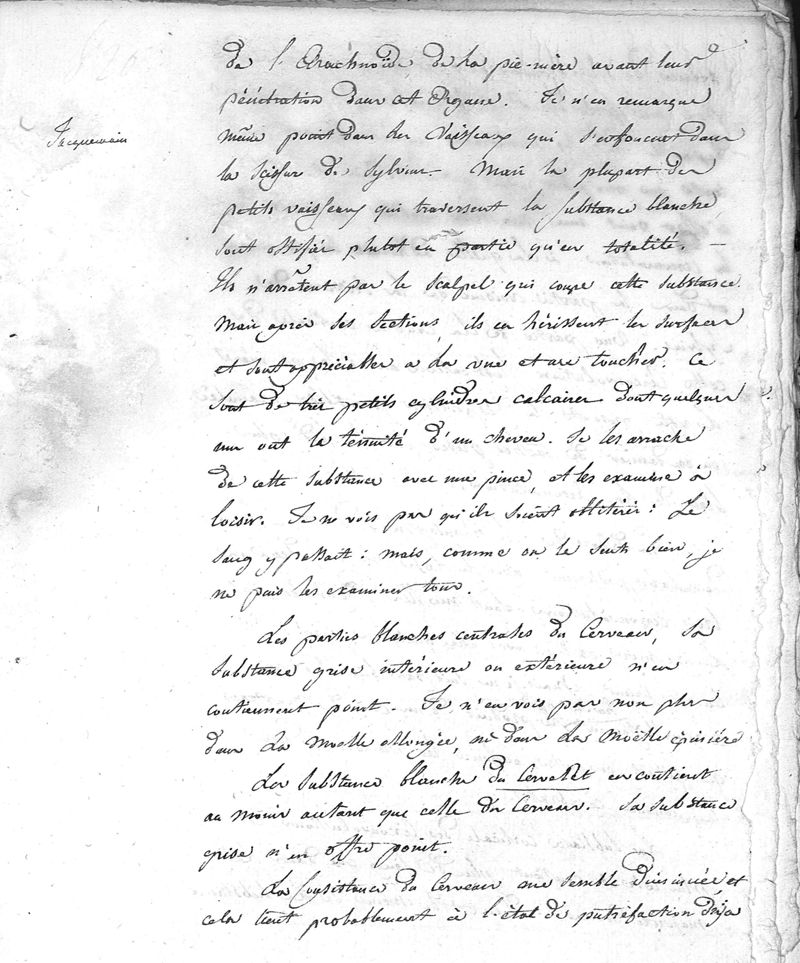 Jacquemain
de l'Arachnoïde, de la pie-mère avant leur
pénétration dans cet Organe. Je n'en remarque
même point dans les Vaisseaux qui s'enfoncent dans
la scissur de Sylvius. Mais la plupart des
petits vaisseaux qui traversent la substance blanche,
sont ossifiés plutot en partie qu'en totalité. —
Ils n'arrêtent pas le scalpel qui coupe cette substance.
Mais après ses sections, ils en hérissent les surfaces
et sont appréciables a la vue et au toucher. Ce
sont de très petits cylindres calcaires dont quelques
uns ont la ténuité d'un cheveu. Je les arrache
de cette substance avec une pince, et les examine à
loisir. Je ne vois pas qu'ils soient oblitérés : Le
sang y passait : mais, comme on le sent bien, je
ne puis les examiner tous.
Les parties blanches centrales du Cerveau, Sa
substance grise intérieure ou extérieure n'en
contiennent point. Je n'en vois pas non plus
dans La Moelle allongée, ni dans La Moëlle épinière
La substance blanche du Cervelet en contient
au moins autant que celle du Cerveau. Sa substance
grise n'en offre point.
La Consistance du Cerveau me semble diminuée, et
cela tient probablement à l'état de putréfaction déja